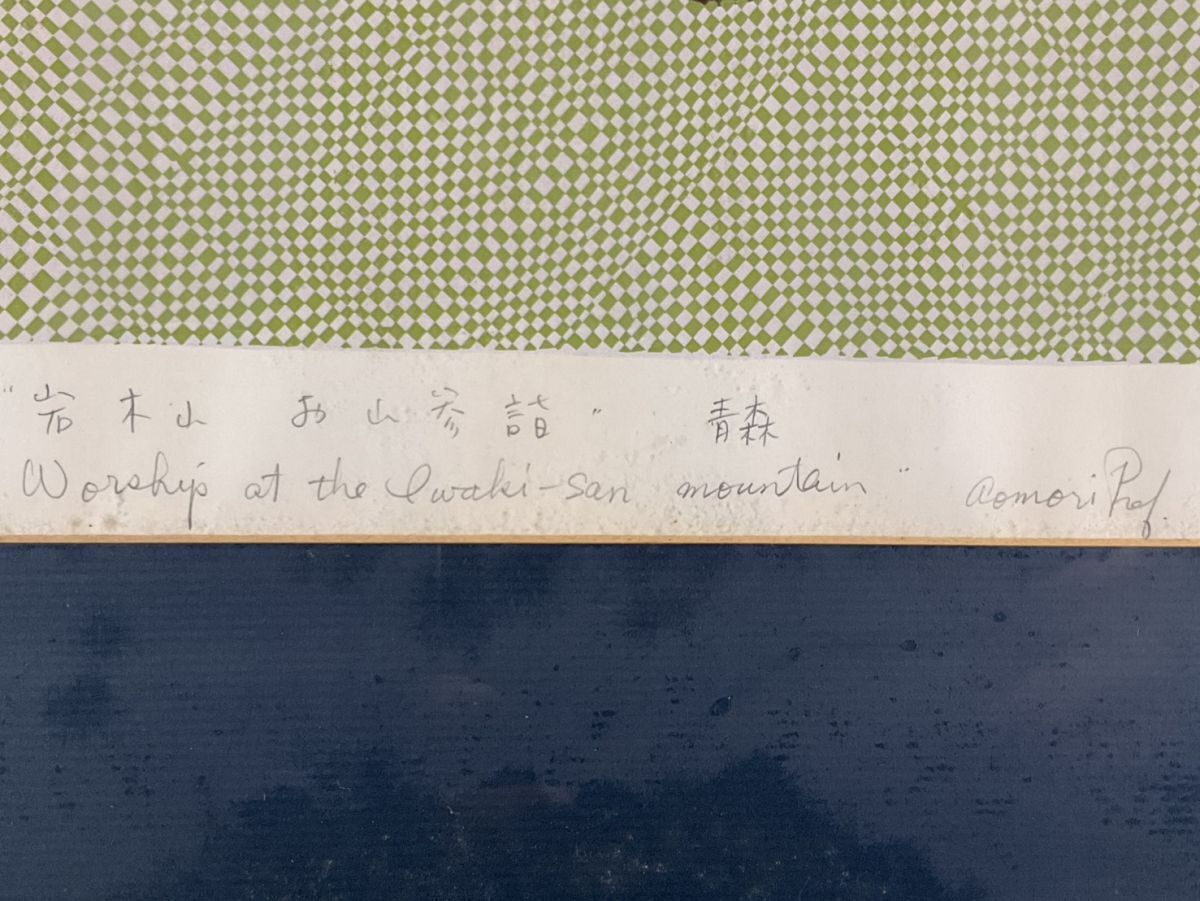 "岩木山 お山参詣" 青森
Worship at the Iwaki-san mountain" Aomori Pref.